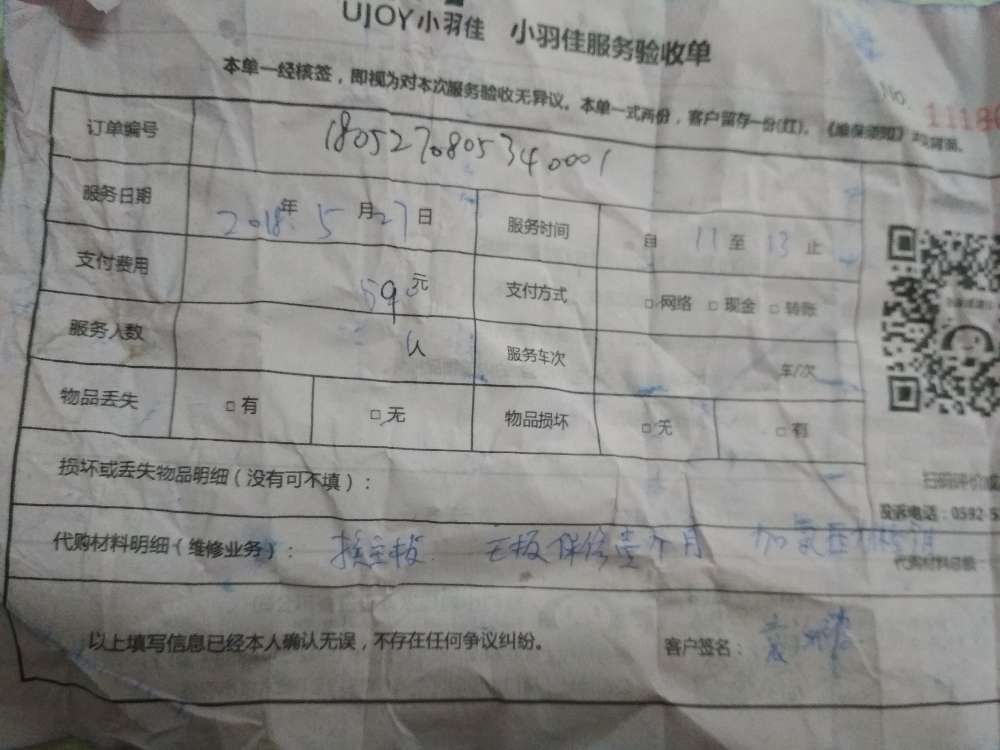 UJOY小羽佳 小羽佳服务验收单
本单一经核签，即视为对本次服务验收无异议。本单一式两份，客户留存一份(红)。《维保须知》
No. 11186
订单编号 1805270805340001
服务日期 2018年 5月27日 服务时间 自 11 至 13 止
支付费用 59元 支付方式 □网络 □现金 □转账
服务人数 人 服务车次 车/次
物品丢失 □有 □无 物品损坏 □无 □有
损坏或丢失物品明细（没有可不填）：
投诉电话：0592
代购材料明细（维修业务）： 换主板 主板保修壹个月 加氟
代购材料总额
以上填写信息已经本人确认无误，不存在任何争议纠纷。 客户签名：